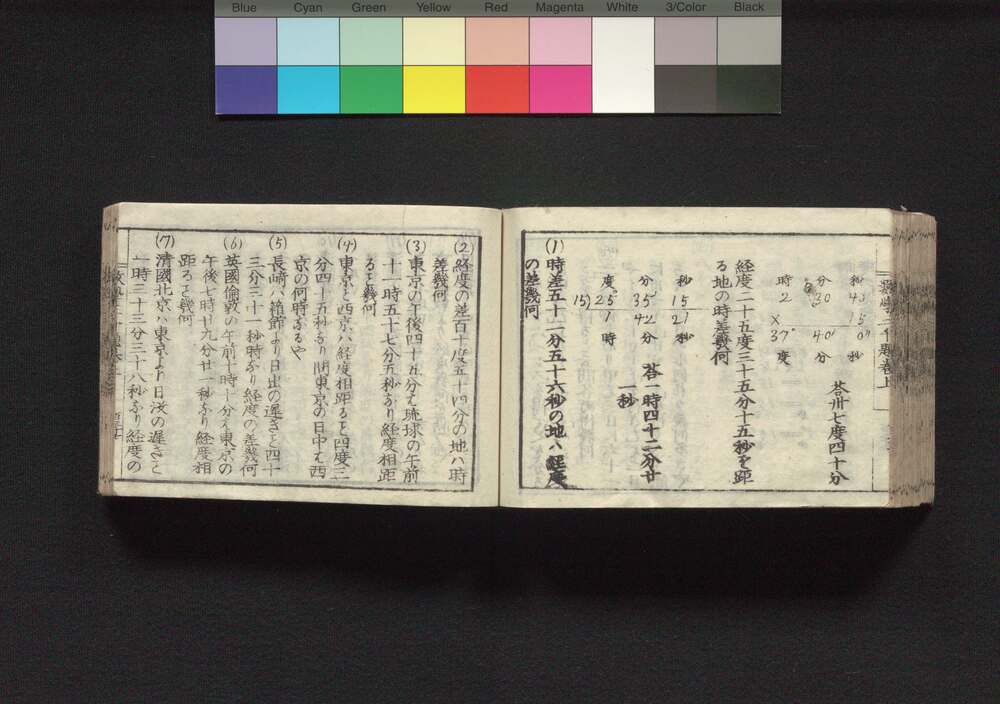 Blue Cyan Green Yellow Red Magenta White 3/Color Black
時 分 秒
2 30 43
× 15
37° 40' 0"
度 分 秒
答卅七度四十分
経度二十五度三十五分十五秒を距
る地の時差幾何
度 分 秒
15)25 35 15
1 42 21
時 分 秒
答一時四十二分廿
一秒
(1)時差五十二分五十六秒の地ハ経度
の差幾何
(2)経度の差百十度五十四分の地ハ時
差幾何
(3)東京の午後四十五分も琉球の午前
十一時五十七分五秒なり経度相距
るを幾何
(4)東京と西京ハ経度相距るを四度三
分四十五秒なり東京の日中も西
京の何時なるや
(5)長崎ハ箱館より日出の遅きを四十
三分三十一秒時なり経度の差幾何
(6)英國倫敦の午前十時十分も東京の
午後七時廿九分廿一秒なり経度相
距るを幾何
(7)清國北京ハ東京より日没の遅きと
一時三十三分三十八秒なり経度の